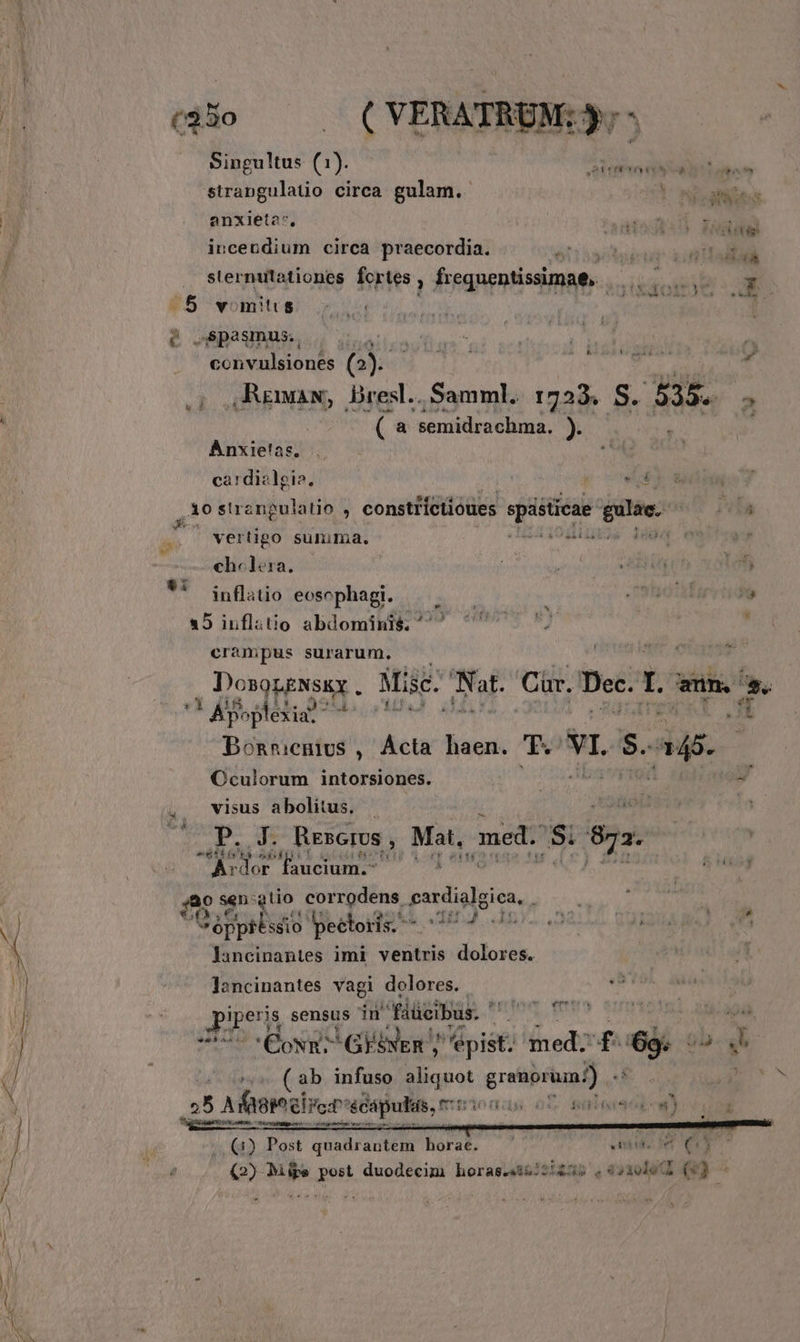 250 ( VERATRUM. )
Singultus (1).
strangulatio circa gulam.
anxietas,
incendium circa praecordia.
sternutationes fortes, frequentissimae,
5 vomitus
spasmus.
convulsiones (2).
REIMAN, Bresl. Samml. 1723. S. 535.
( a semidrachma. ).
Anxietas.
cardialgia.
10 strangulatio, constrictiones spasticae gulae.
vertigo summa.
cholera.
inflatio eosophagi.
15 inflatio abdominis.
crampus surarum.
DOBOZENSKY. Misc. Nat. Cur. Dec. I. ann. 2.
Apoplexia.
BORRICHIUS, Acta haen. T. VI. S. 145.
Oculorum intorsiones.
visus abolitus.
P. J. BERGIUS, Mat. med. S. 872.
Ardor faucium.
20 sensatio corrodens cardialgica.
oppressio pectoris.
lancinantes imi ventris dolores.
lancinantes vagi dolores.
piperis sensus in faucibus.
CONR. GESNER, epist. med. f. 69.
( ab infuso aliquot granorum.)
25 Ardor circa scapulas,
(1) Post quadrantem horae.
(2) post duodecim horas.